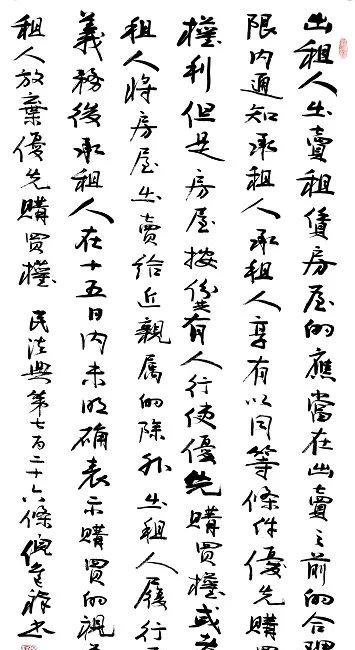 出租人出賣租賃房屋的應當在出賣之前的合理
限内通知承租人承租人享有以同等條件優先購
權利但是房屋按份共有人行使優先購買權或者
租人將房屋出賣給近親属的除外出租人履行
義務後承租人在十五日内未明確表示購買的視
租人放棄優先購買權 民法典第七百二十六條 倪祥书